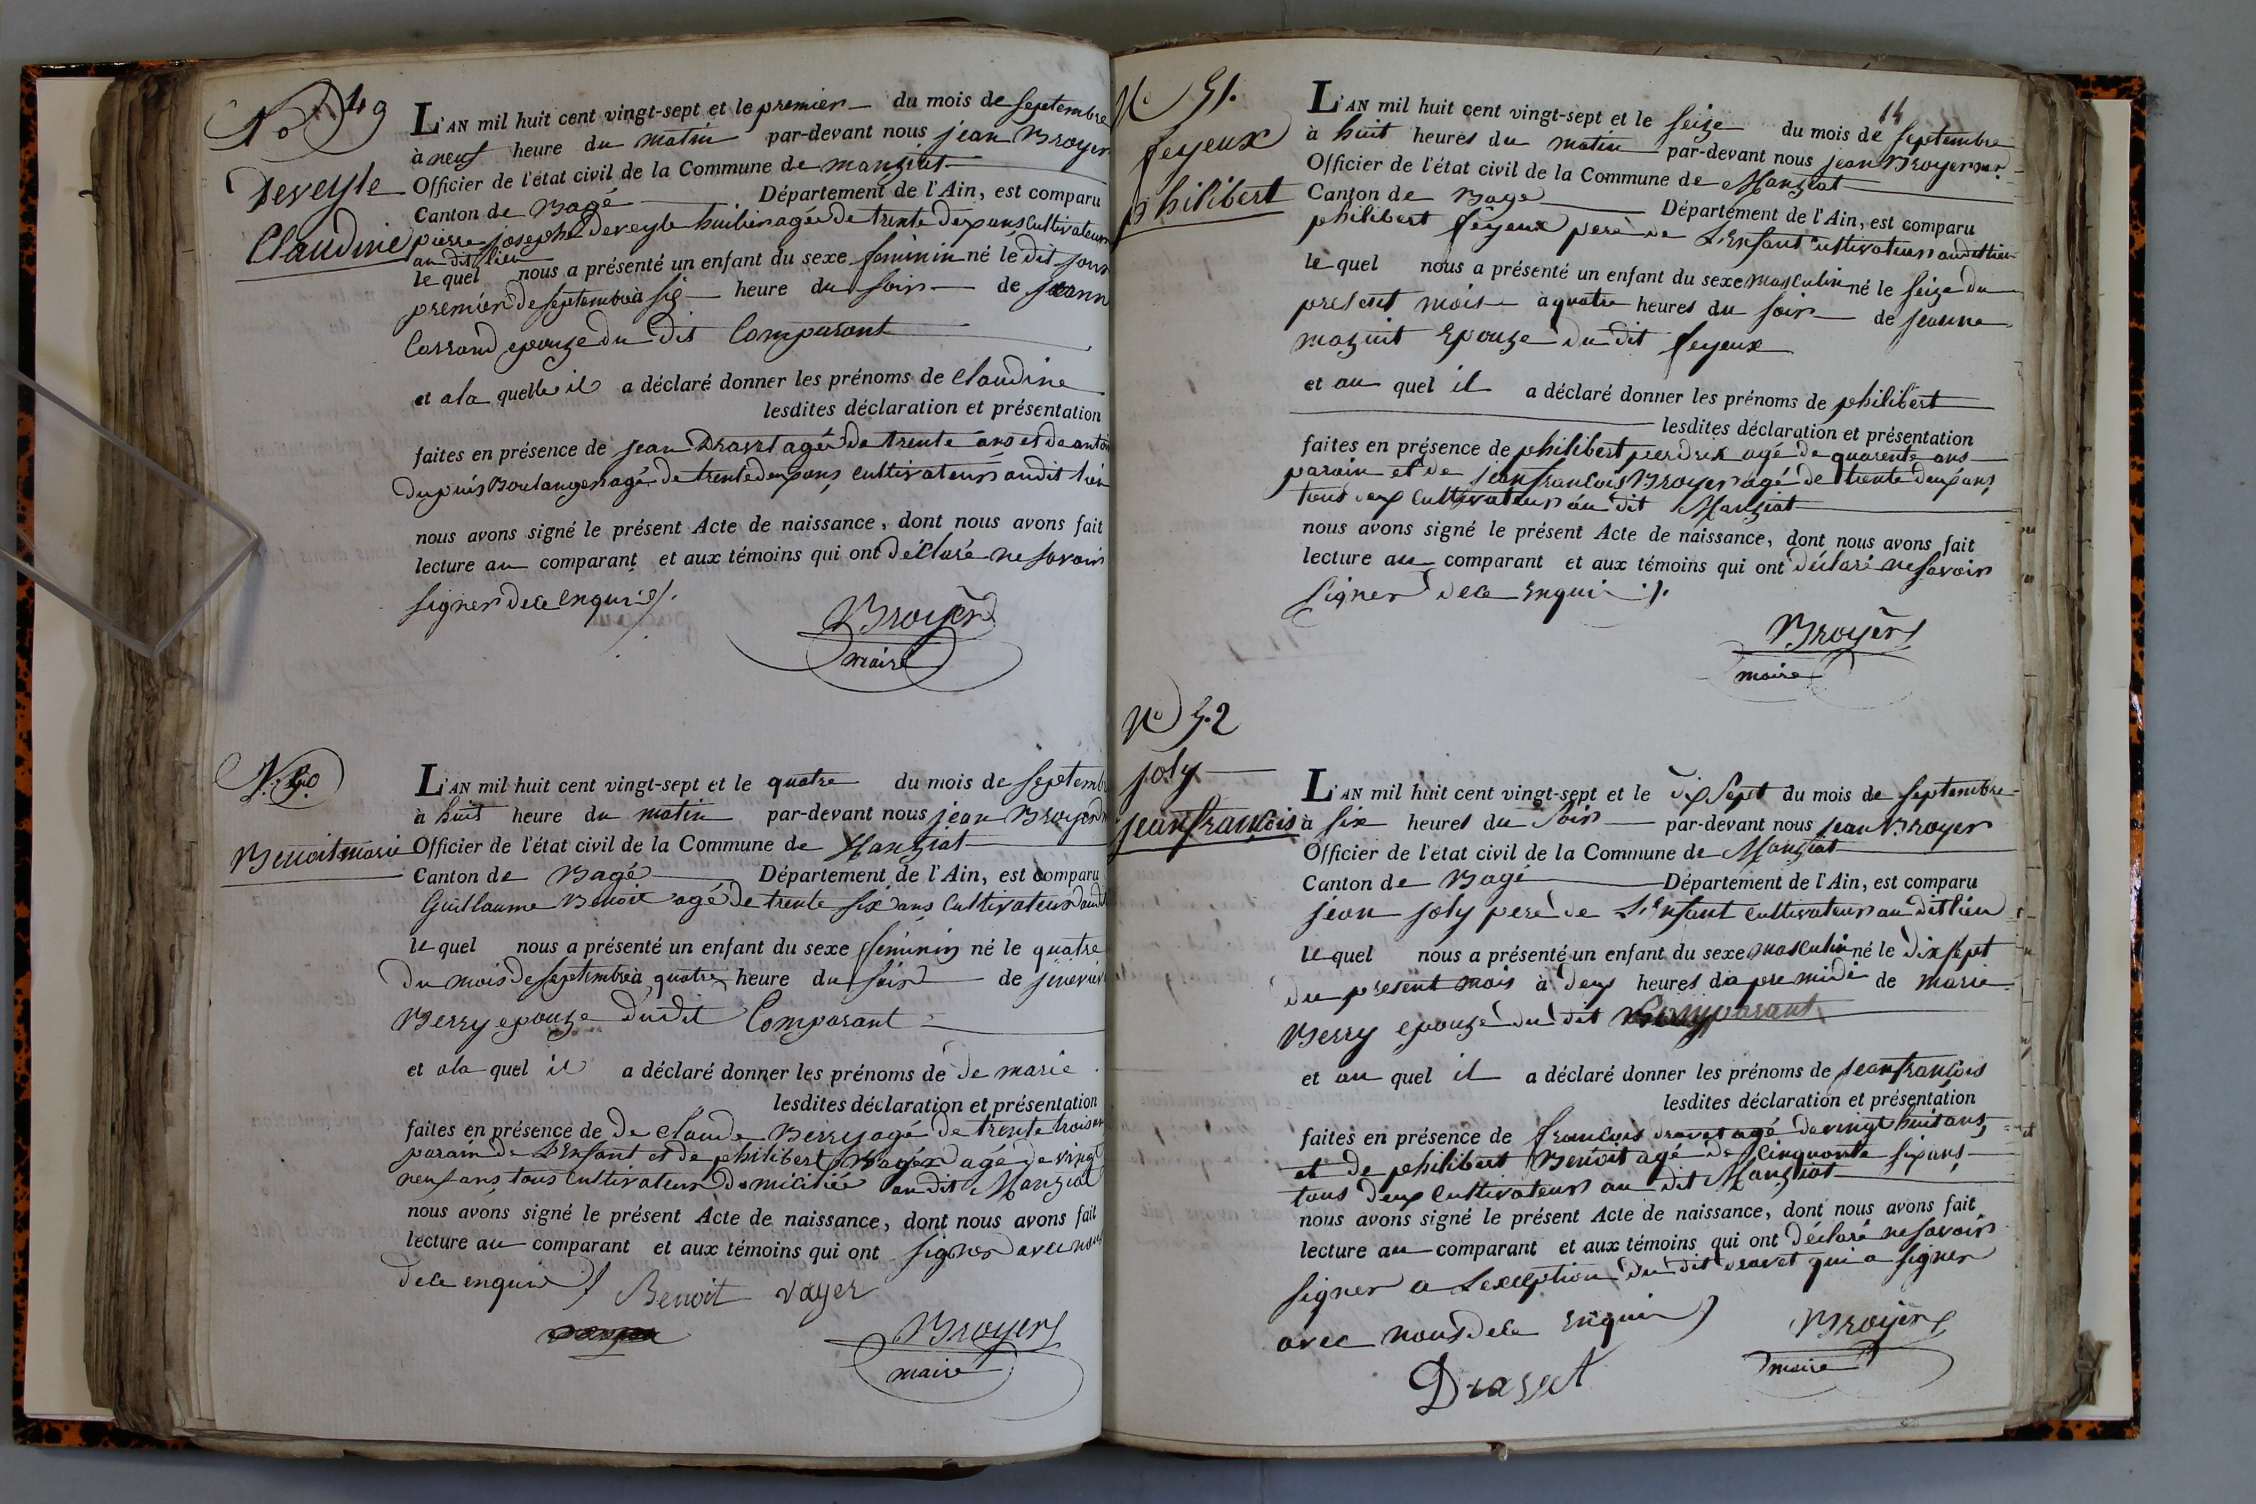 No 49
Deveyle
Claudine
L'AN mil huit cent vingt-sept et le premier du mois de septembre
à neuf heure du matin par-devant nous jean Broyer
Officier de l'état civil de la Commune de manziat
Canton de Bagé Département de l'Ain, est comparu
pierre joseph Deveyle huilier agée de trente deux ans Cultivateur
au dit lieu
le quel nous a présenté un enfant du sexe feminin né le dit jour
premier de septembre à six heure du soir de jeann
Corrand epouze du dit Comparant
et a la quelle il a déclaré donner les prénoms de Claudine
lesdites déclaration et présentation
faites en présence de jean Dravet agée de trente ans et de antoi
Dupuis Boulanger agé de trente deux ans, cultivateurs audit lieu
nous avons signé le présent Acte de naissance, dont nous avons fait
lecture au comparant et aux témoins qui ont déclaré ne savoir
signer de ce enquis ./.
Broyer
maire
N. 50
Benoit marie
L'AN mil huit cent vingt-sept et le quatre du mois de septemb
à huit heure du matin par-devant nous jean Broyer
Officier de l'état civil de la Commune de Manziat
Canton de Bagé Département de l'Ain, est comparu
Guillaume Benoit agé de trente six ans Cultivateur audit
le quel nous a présenté un enfant du sexe feminin né le quatre
du mois de septembre à quatre heure du soir de jenevieve
Berry epouze dudit Comparant
et a la quel il a déclaré donner les prénoms de de marie
lesdites déclaration et présentation
faites en présence de de Claude Berry agé de trente trois an
parain de L'Enfant et de philibert Voyer agé de vingt
neuf ans, tous Cultivateur domicilié au dit Manziat
nous avons signé le présent Acte de naissance, dont nous avons fait
lecture au comparant et aux témoins qui ont signer avec nous
de ce enquis ./. Benoit Voyer
Broyer
maire
14
No 51.
feyeux
philibert
L'AN mil huit cent vingt-sept et le seize du mois de septembre
à huit heures du matin par-devant nous jean Broyer
Officier de l'état civil de la Commune de Manziat
Canton de Bagé Département de l'Ain, est comparu
philibert feyeux pere de L'Enfant Cultivateur audit lieu
le quel nous a présenté un enfant du sexe masculin né le seize du
present mois à quatre heures du soir de jeanne
mazuit Epouze du dit feyeux
et au quel il a déclaré donner les prénoms de philibert
lesdites déclaration et présentation
faites en présence de philibert perdrix agé de quarente ans
parain et de jean francois Broyer agé de trente deux ans,
tous deux Cultivateur au dit Manziat
nous avons signé le présent Acte de naissance, dont nous avons fait
lecture au comparant et aux témoins qui ont déclaré ne savoir
signer de ce Enquis ./.
Broyer
maire
No 52
joly
jean francois
L'AN mil huit cent vingt-sept et le dix sept du mois de septembre
à six heures du soir par-devant nous jean Broyer
Officier de l'état civil de la Commune de Manziat
Canton de Bagé Département de l'Ain, est comparu
jean joly pere de L'Enfant cultivateur au dit lieu
le quel nous a présenté un enfant du sexe masculin né le dix sept
du present mois à deux heures dapre midi de marie
Berry epouze du dit Comparant
et au quel il a déclaré donner les prénoms de jean francois
lesdites déclaration et présentation
faites en présence de francois dravet agé de vingt huit ans,
et de philibert Benoit agé de Cinquante six ans,
tous deux Cultivateur au dit Manziat
nous avons signé le présent Acte de naissance, dont nous avons fait
lecture au comparant et aux témoins qui ont déclaré ne savoir
signer a Lexception du dit dravet qui a signer
avec nous de ce Enquis
Broyer
maire
Dravet